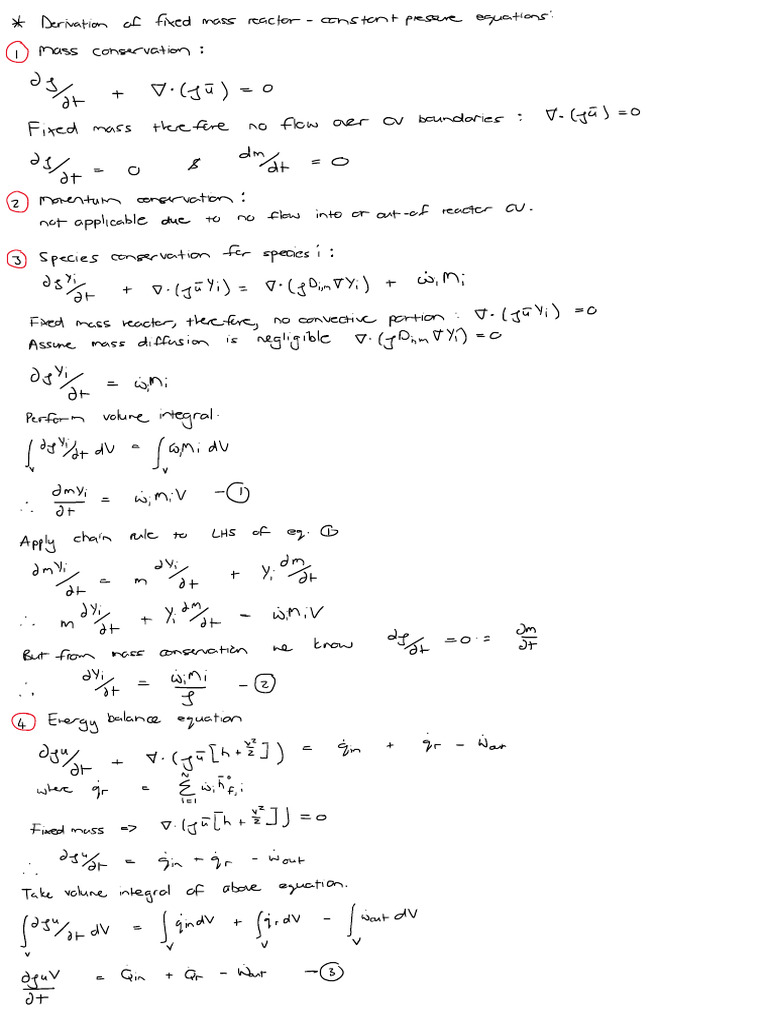 * Derivation of fixed mass reactor - constant pressure equations:
① Mass conservation :
∂ρ/∂t + ∇·(ρū) = 0
Fixed mass therefore no flow over CV boundaries : ∇·(ρū) = 0
∂ρ/∂t = 0 & dm/dt = 0
② Momentum conservation :
not applicable due to no flow into or out-of reactor CV.
③ Species conservation for species i :
∂ρYi/∂t + ∇·(ρūYi) = ∇·(ρDi,m∇Yi) + ω̇iMi
Fixed mass reactor, therefore, no convective portion : ∇·(ρūYi) = 0
Assume mass diffusion is negligible ∇·(ρDi,m∇Yi) = 0
∂ρYi/∂t = ω̇iMi
Perform volume integral.
∫v ∂ρYi/∂t dV = ∫v ω̇iMi dV
∴ ∂mYi/∂t = ω̇iMiV - ①
Apply chain rule to LHS of eq. ①
∂mYi/∂t = m ∂Yi/∂t + Yi ∂m/∂t
∴ m ∂Yi/∂t + Yi ∂m/∂t - ω̇iMiV
But from mass conservation we know ∂ρ/∂t = 0 = ∂m/∂t
∴ ∂Yi/∂t = ω̇iMi/ρ - ②
④ Energy balance equation
∂ρu/∂t + ∇·(ρū[h + v²/2]) = q̇in + q̇r - ẇout
where q̇r = Σ(i=1)^N ω̇i h̄°f,i
Fixed mass => ∇·(ρū[h + v²/2]) = 0
∴ ∂ρu/∂t = q̇in + q̇r - ẇout
Take volume integral of above equation.
∫v ∂ρu/∂t dV = ∫v q̇in dV + ∫v q̇r dV - ∫v ẇout dV
∂ρuV/∂t = Q̇in + Q̇r - Ẇout - ③